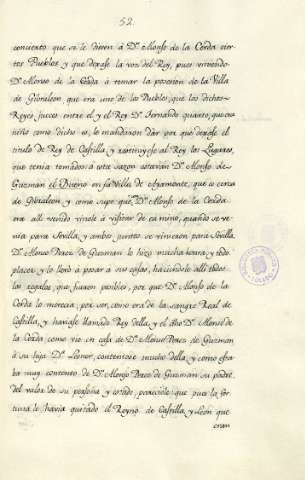 52.
concierto que si le dieren á Dn. Alonso de la Cerda cier-
tos Pueblos y que dexase la voz del Rey, pues viniendo
Dn. Alonso de la Cerda á tomar la posesion de la Villa
de Gibraleon que era uno de los Pueblos, que los dichos
Reyes jueces entre el y el Rey Dn. Fernando quarto, que en
niño como dicho es, le mandaron dár por que dexase el
titulo de Rey de Castilla, y restituyese al Rey los Lugares,
que tenia tomados á esta sazon estaván Dn. Alonso de
Guzman el Bueno en su Villa de Ayamonte, que es cerca
de Gibraleon, y como supo que Dn. Alonso de la Cerda
era alli venido vinole á visitar de camino, quando se ve-
nia para Sevilla, y ambos juntos se vinieron para Sevilla
Dn. Alonso Perez de Guzman le hizo mucha honra, y todo
placer, y lo llevó a posar a sus casas, haciendole alli todos
los regalos que fueron posibles, por que Dn. Alonso de la
Cerda lo merecia, por ser, como era de la sangre Real de
Castilla, y haviase llamado Rey della, y el dho Dn. Alonso de
la Cerda como vió en casa de Dn. Alonso Perez de Guzman
á su hija Da. Leonor, contentose mucho della, y como esta-
ba muy contento de Dn. Alonso Perez de Guzman su padre,
del valor de su persona y estado, pareciole que pues la for-
tuna le havia quitado el Reyno de Castilla, y Leon que
eran